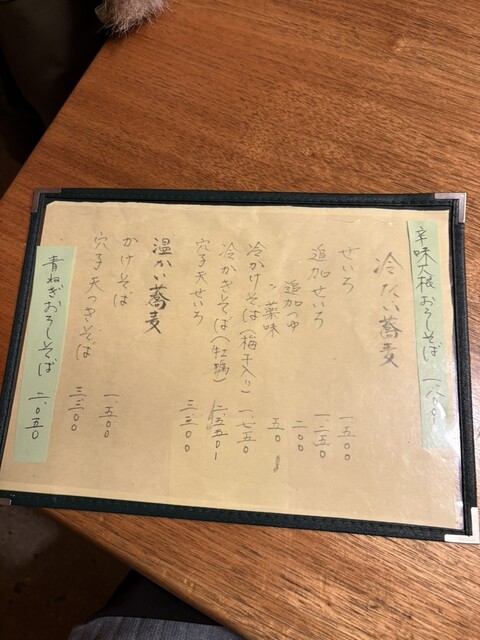 辛味大根おろしそば 一、八〇〇
冷たい蕎麦
せいろ 一、五〇〇
追加せいろ 一、二五〇
追加つゆ 二〇〇
〃 薬味 五〇
冷かけそば(梅干入り) 一、七五〇
冷かきそば(牡蠣) 二、五五〇
穴子天せいろ 三、三〇〇
温かい蕎麦
かけそば 一、五〇〇
穴子天つきそば 三、三〇〇
青ねぎおろしそば 二、〇五〇